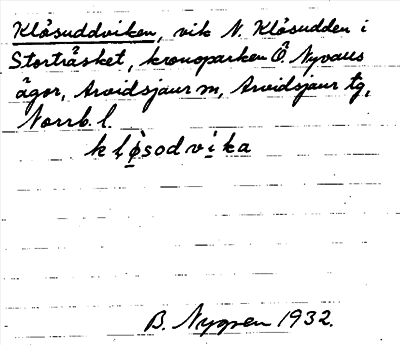 Klösuddviken, vik N. Klösudden i
Storträsket, kronoparken Ö. Nyvalls
ägor, Arvidsjaur sn, Arvidsjaur tg,
Norrb. l.
kløsodvika
B. Nygren 1932.